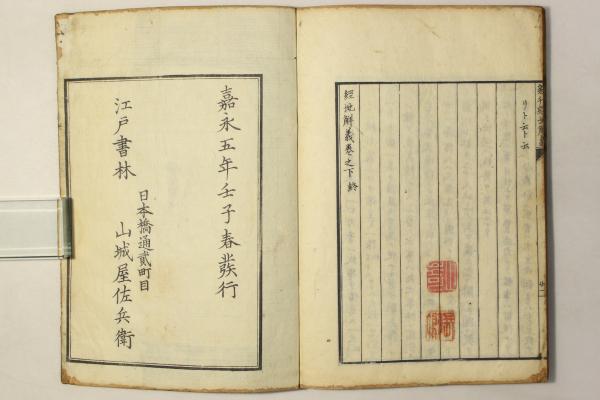 リト云ト云
經地解義卷之下終
嘉永五年壬子春發行
江戸書林
日本橋通貳町目
山城屋佐兵衛